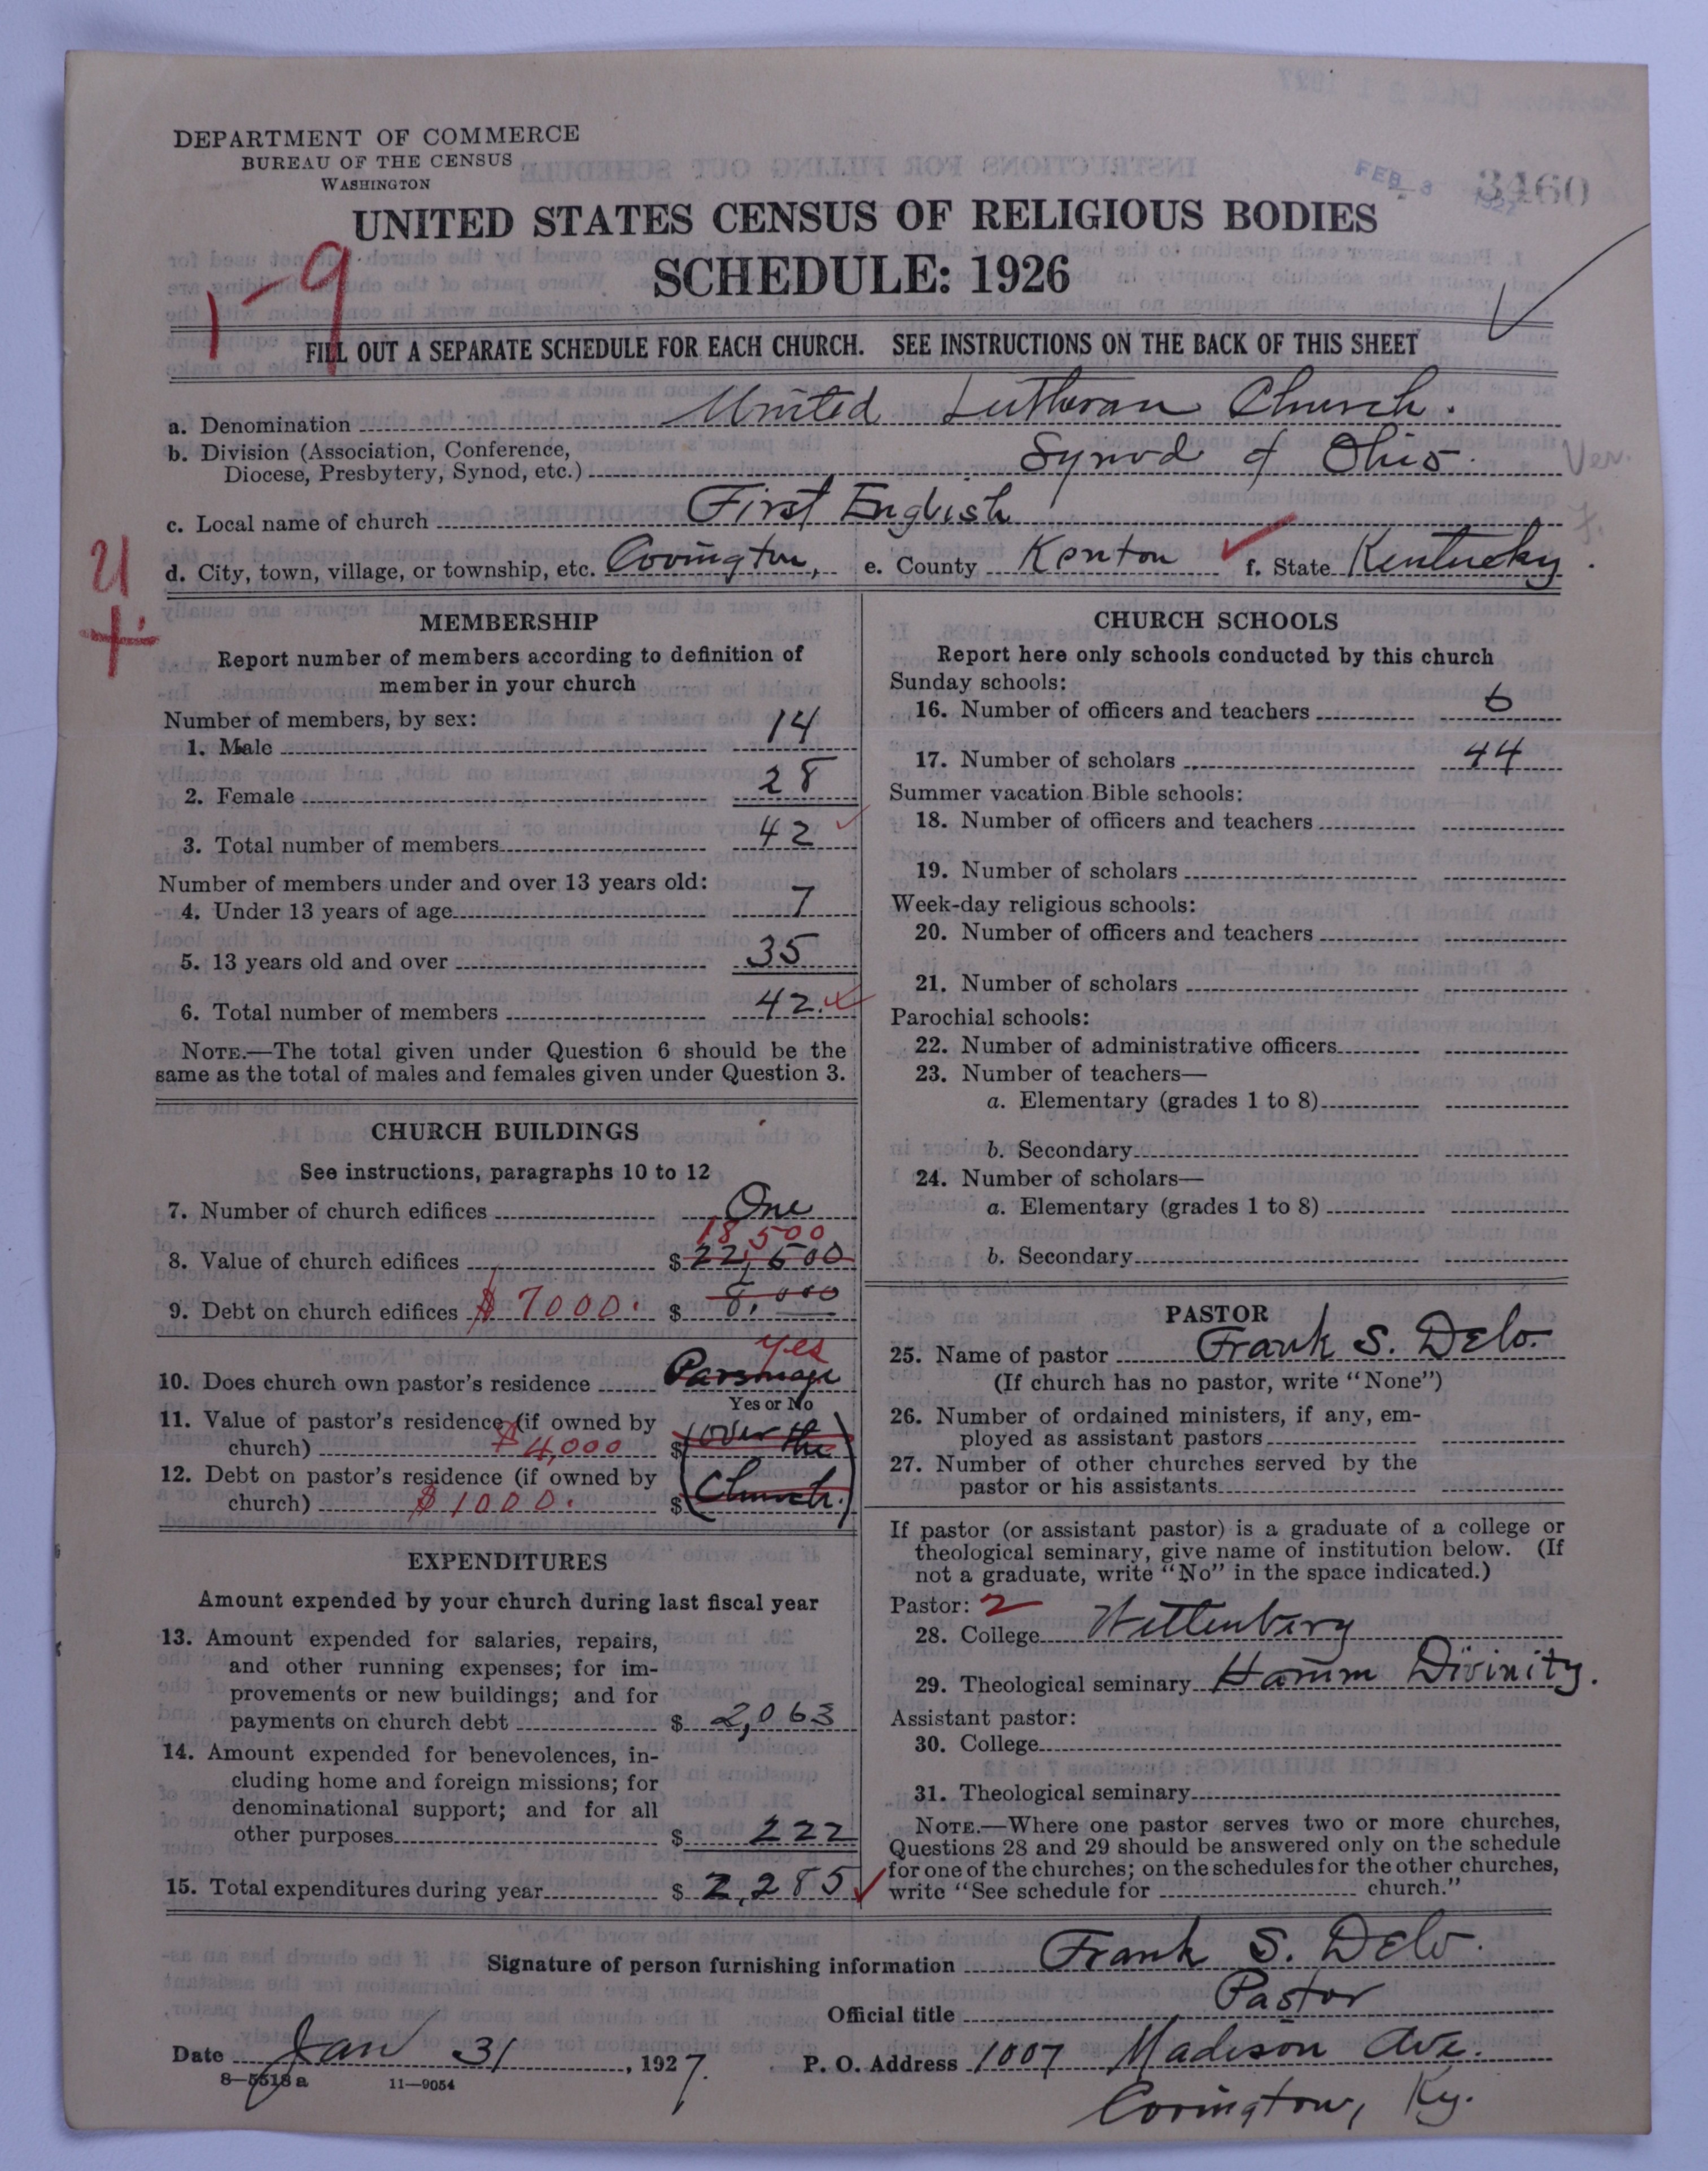 DEPARTMENT OF COMMERCE
BUREAU OF THE CENSUS
WASHINGTON
FEB 3 1927
3460
UNITED STATES CENSUS OF RELIGIOUS BODIES
SCHEDULE: 1926
1-9
FILL OUT A SEPARATE SCHEDULE FOR EACH CHURCH. SEE INSTRUCTIONS ON THE BACK OF THIS SHEET
a. Denomination United Lutheran Church.
b. Division (Association, Conference,
Diocese, Presbytery, Synod, etc.) Synod of Ohio. Ver.
c. Local name of church First English
d. City, town, village, or township, etc. Covington, e. County Kenton f. State Kentucky.
MEMBERSHIP
Report number of members according to definition of
member in your church
Number of members, by sex:
1. Male 14
2. Female 28
3. Total number of members 42
Number of members under and over 13 years old:
4. Under 13 years of age 7
5. 13 years old and over 35
6. Total number of members 42.
NOTE.—The total given under Question 6 should be the
same as the total of males and females given under Question 3.
CHURCH BUILDINGS
See instructions, paragraphs 10 to 12
7. Number of church edifices One
18,500
8. Value of church edifices $ 22,500
9. Debt on church edifices $7000. $ 8,000
yes
10. Does church own pastor's residence Parsonage
Yes or No
11. Value of pastor's residence (if owned by
church) $4,000 $ (over the
12. Debt on pastor's residence (if owned by
church) $1000. $ Church.)
EXPENDITURES
Amount expended by your church during last fiscal year
13. Amount expended for salaries, repairs,
and other running expenses; for im-
provements or new buildings; and for
payments on church debt $ 2,063
14. Amount expended for benevolences, in-
cluding home and foreign missions; for
denominational support; and for all
other purposes $ 222
15. Total expenditures during year $ 2,285
CHURCH SCHOOLS
Report here only schools conducted by this church
Sunday schools:
16. Number of officers and teachers 6
17. Number of scholars 44
Summer vacation Bible schools:
18. Number of officers and teachers
19. Number of scholars
Week-day religious schools:
20. Number of officers and teachers
21. Number of scholars
Parochial schools:
22. Number of administrative officers
23. Number of teachers—
a. Elementary (grades 1 to 8)
b. Secondary
24. Number of scholars—
a. Elementary (grades 1 to 8)
b. Secondary
PASTOR
25. Name of pastor Frank S. Delo.
(If church has no pastor, write "None")
26. Number of ordained ministers, if any, em-
ployed as assistant pastors
27. Number of other churches served by the
pastor or his assistants
If pastor (or assistant pastor) is a graduate of a college or
theological seminary, give name of institution below. (If
not a graduate, write "No" in the space indicated.)
Pastor: 2
28. College Wittenberg
29. Theological seminary Hamm Divinity.
Assistant pastor:
30. College
31. Theological seminary
NOTE.—Where one pastor serves two or more churches,
Questions 28 and 29 should be answered only on the schedule
for one of the churches; on the schedules for the other churches,
write "See schedule for church."
Signature of person furnishing information Frank S. Delo.
Official title Pastor
Date Jan 31, 1927. P. O. Address 1007 Madison Ave.
8-5518 a 11-9054
Covington, Ky.